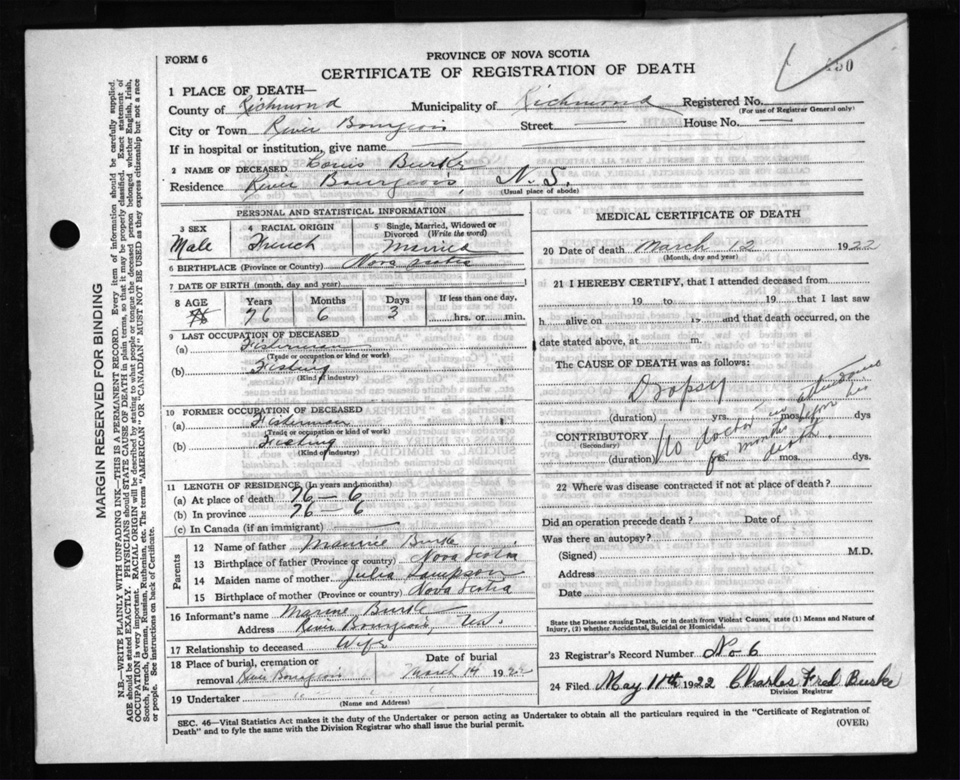 FORM 6
PROVINCE OF NOVA SCOTIA
CERTIFICATE OF REGISTRATION OF DEATH
1 PLACE OF DEATH—
County of Richmond Municipality of Richmond Registered No.
(For use of Registrar General only)
City or Town River Bourgeois Street House No.
If in hospital or institution, give name
2 NAME OF DECEASED Louis Burke
Residence River Bourgeois, N.S.
(Usual place of abode)
PERSONAL AND STATISTICAL INFORMATION
3 SEX 4 RACIAL ORIGIN 5 Single, Married, Widowed or Divorced (Write the word)
Male French Married
6 BIRTHPLACE (Province or Country) Nova Scotia
7 DATE OF BIRTH (month, day and year)
8 AGE Years Months Days If less than one day,
76 6 3 hrs. or min.
9 LAST OCCUPATION OF DECEASED
(a) Fisherman
(Trade or occupation or kind of work)
(b) Fishing
(Kind of industry)
10 FORMER OCCUPATION OF DECEASED
(a) Fisherman
(Trade or occupation or kind of work)
(b) Fishing
(Kind of industry)
11 LENGTH OF RESIDENCE (In years and months)
(a) At place of death 76 — 6
(b) In province 76 — 6
(c) In Canada (if an immigrant)
Parents
12 Name of father Maurice Burke
13 Birthplace of father (Province or country) Nova Scotia
14 Maiden name of mother Julia Sampson
15 Birthplace of mother (Province or country) Nova Scotia
16 Informant's name Burke
Address River Bourgeois,
17 Relationship to deceased Wife
18 Place of burial, cremation or Date of burial
removal River Bourgeois March 14 1922
19 Undertaker " " "
(Name and Address)
MEDICAL CERTIFICATE OF DEATH
20 Date of death March 12 1922
(Month, day and year)
21 I HEREBY CERTIFY, that I attended deceased from
19 to 19 that I last saw
h alive on 19 and that death occurred, on
date stated above, at m.
The CAUSE OF DEATH was as follows:
Dropsy
(duration) yrs. mos. dys
CONTRIBUTORY
(Secondary)
No doctor in attendance
for months before
death.
(duration) yrs. mos. dys.
22 Where was disease contracted if not at place of death?
Did an operation precede death? Date of
Was there an autopsy?
(Signed) M.D.
Address
Date
State the Disease causing Death, or in death from Violent Causes, state (1) Means and Nature of
Injury, (2) whether Accidental, Suicidal or Homicidal.
23 Registrar's Record Number No 6
24 Filed May 11th 1922 Charles Fred Burke
Division Registrar
SEC. 46—Vital Statistics Act makes it the duty of the Undertaker or person acting as Undertaker to obtain all the particulars required in the "Certificate of Registration of
Death" and to fyle the same with the Division Registrar who shall issue the burial permit.
(OVER)
MARGIN RESERVED FOR BINDING
N.B.—WRITE PLAINLY WITH UNFADING INK—THIS IS A PERMANENT RECORD. Every item of information should be carefully supplied.
AGE should be stated EXACTLY. PHYSICIANS should STATE CAUSE OF DEATH in plain terms, so that it may be properly classified. Exact statement of
OCCUPATION is very important. RACIAL ORIGIN will be described by stating to what people or tongue the deceased person belonged, whether English, Irish,
Scotch, French, German, Russian, Ruthenian, etc. The terms "AMERICAN" OR "CANADIAN" MUST NOT BE USED as they express citizenship but not a race
or people. See instructions on back of Certificate.